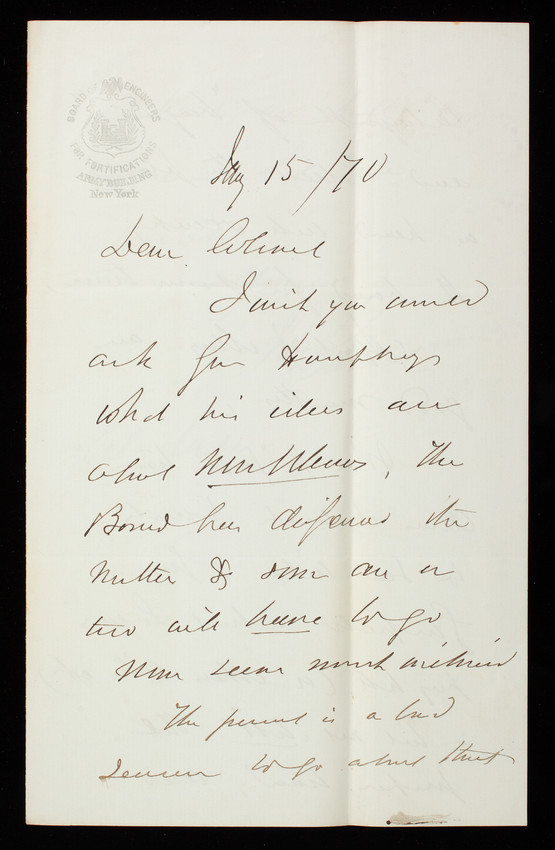 BOARD OF ENGINEERS
FOR FORTIFICATIONS
ARMY BUILDING
New York
Jany 15/70
Dear Colonel
I wish you would
ask Gen Humphreys
what his ideas are
about New Orleans, the
Board has discussed the
matter & some one or
two will have to go
None seem much inclined
The present is a bad
season to go about that